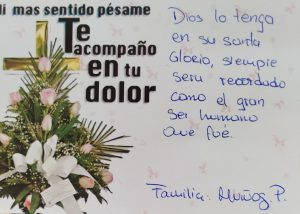 i mas sentido pésame
Te
acompaño
en tu
dolor
Dios lo tenga
en su santa
Gloria, siempre
será recordado
como el gran
ser humano
que fué.
Familia: Muñoz P.